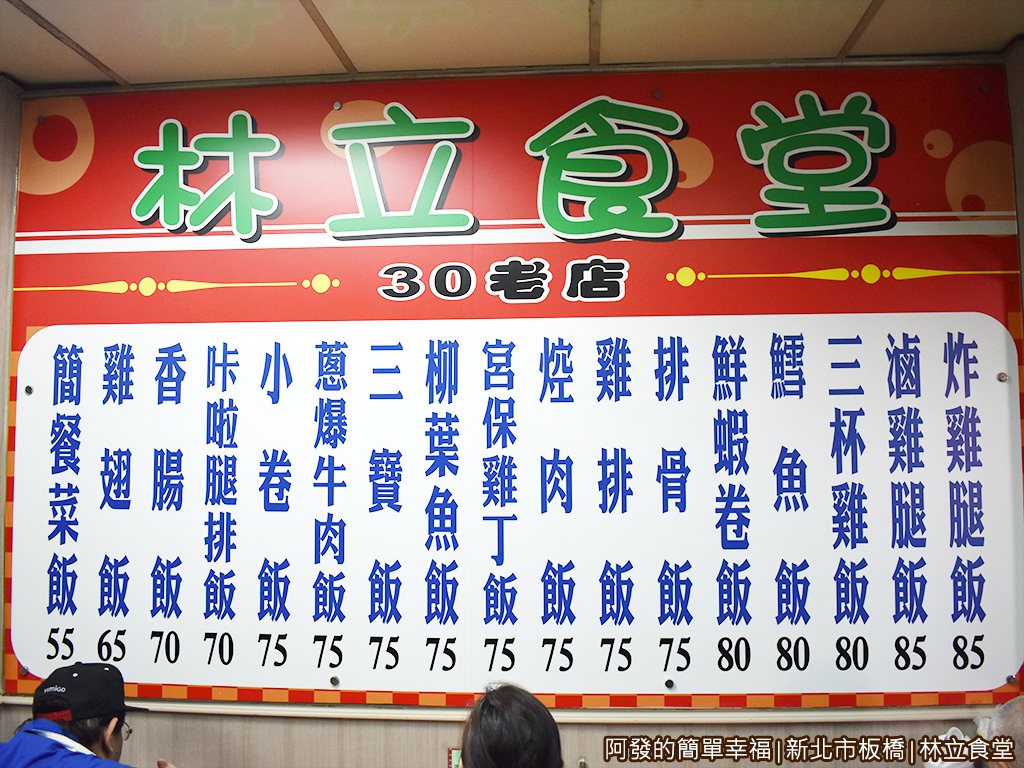 林立食堂
30老店
炸雞腿飯 85
滷雞腿飯 85
三杯雞飯 80
鱈魚飯 80
鮮蝦卷飯 80
排骨飯 75
雞排飯 75
焢肉飯 75
宮保雞丁飯 75
柳葉魚飯 75
三寶飯 75
蔥爆牛肉飯 75
小卷飯 75
咔啦腿排飯 70
香腸飯 70
雞翅飯 65
簡餐菜飯 55
阿發的簡單幸福|新北市板橋|林立食堂